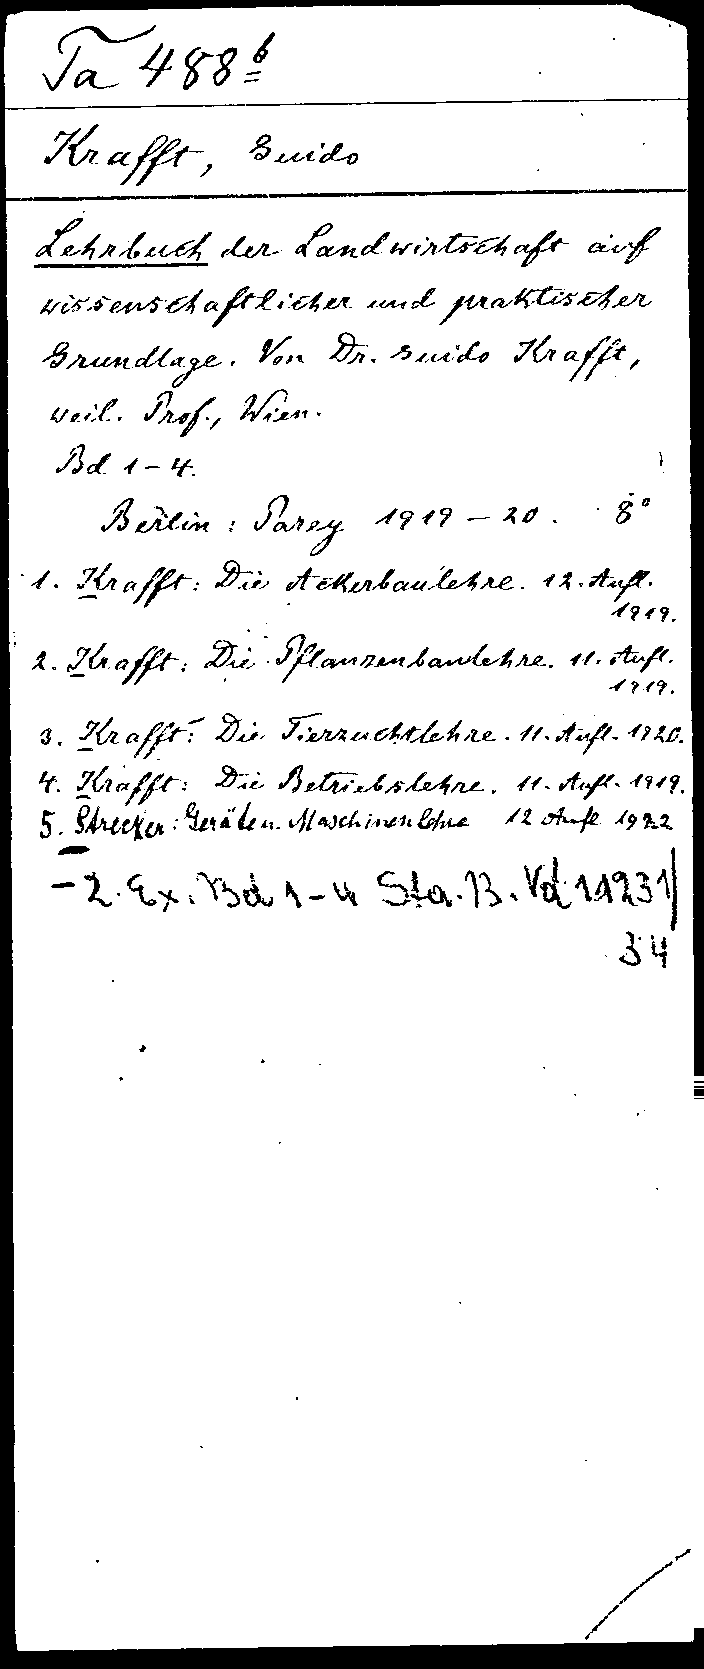 Ta 488b
Krafft, Guido
Lehrbuch der Landwirtschaft auf
wissenschaftlicher und praktischer
Grundlage. Von Dr. Guido Krafft,
weil. Prof., Wien.
Bd 1-4.
Berlin: Parey 1919-20. 8°
1. Krafft: Die Ackerbaulehre. 12. Aufl.
1919.
2. Krafft: Die Pflanzenbaulehre. 11. Aufl.
1919.
3. Krafft: Die Tierzuchtlehre. 11. Aufl. 1920.
4. Krafft: Die Betriebslehre. 11. Aufl. 1919.
5. Strecker: Geräte u. Maschinenlehre 12 Aufl 1922
- 2. Ex. Bd 1-4 Sta. B. Vd 11931/
34